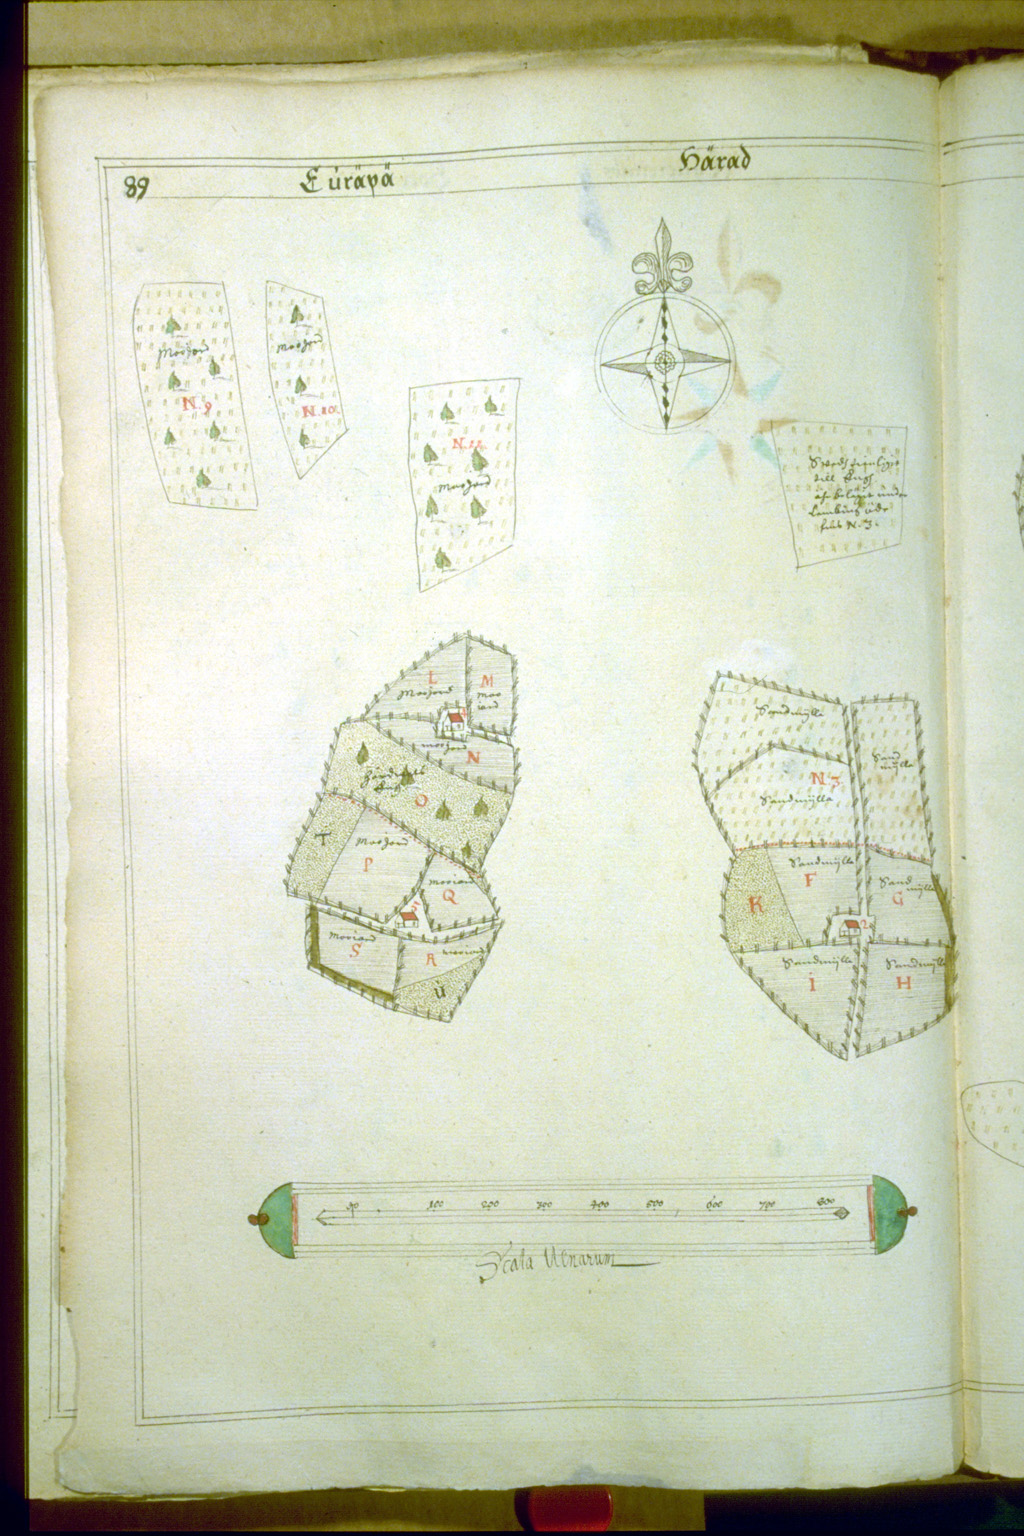 89
Eüräpä
Härad
Moojord
N. 9
Moojord
N. 10.
N. 11.
Moojord
till
Lembüs
N. 3.
L
Moojord
M
Moo
iord
moojord
N
O
T
Moojord
P
mooiord
Q
mooiord
S
R
mooiord
Ü
Sandmÿlla
Sand
mÿlla
N 3
Sandmÿlla
Sandmÿlla
F
K
Sand
mÿlla
G
2
Sandmÿlla
I
Sandmÿlla
H
50 100 200 300 400 500 600 700 800
Scala Ulnarum